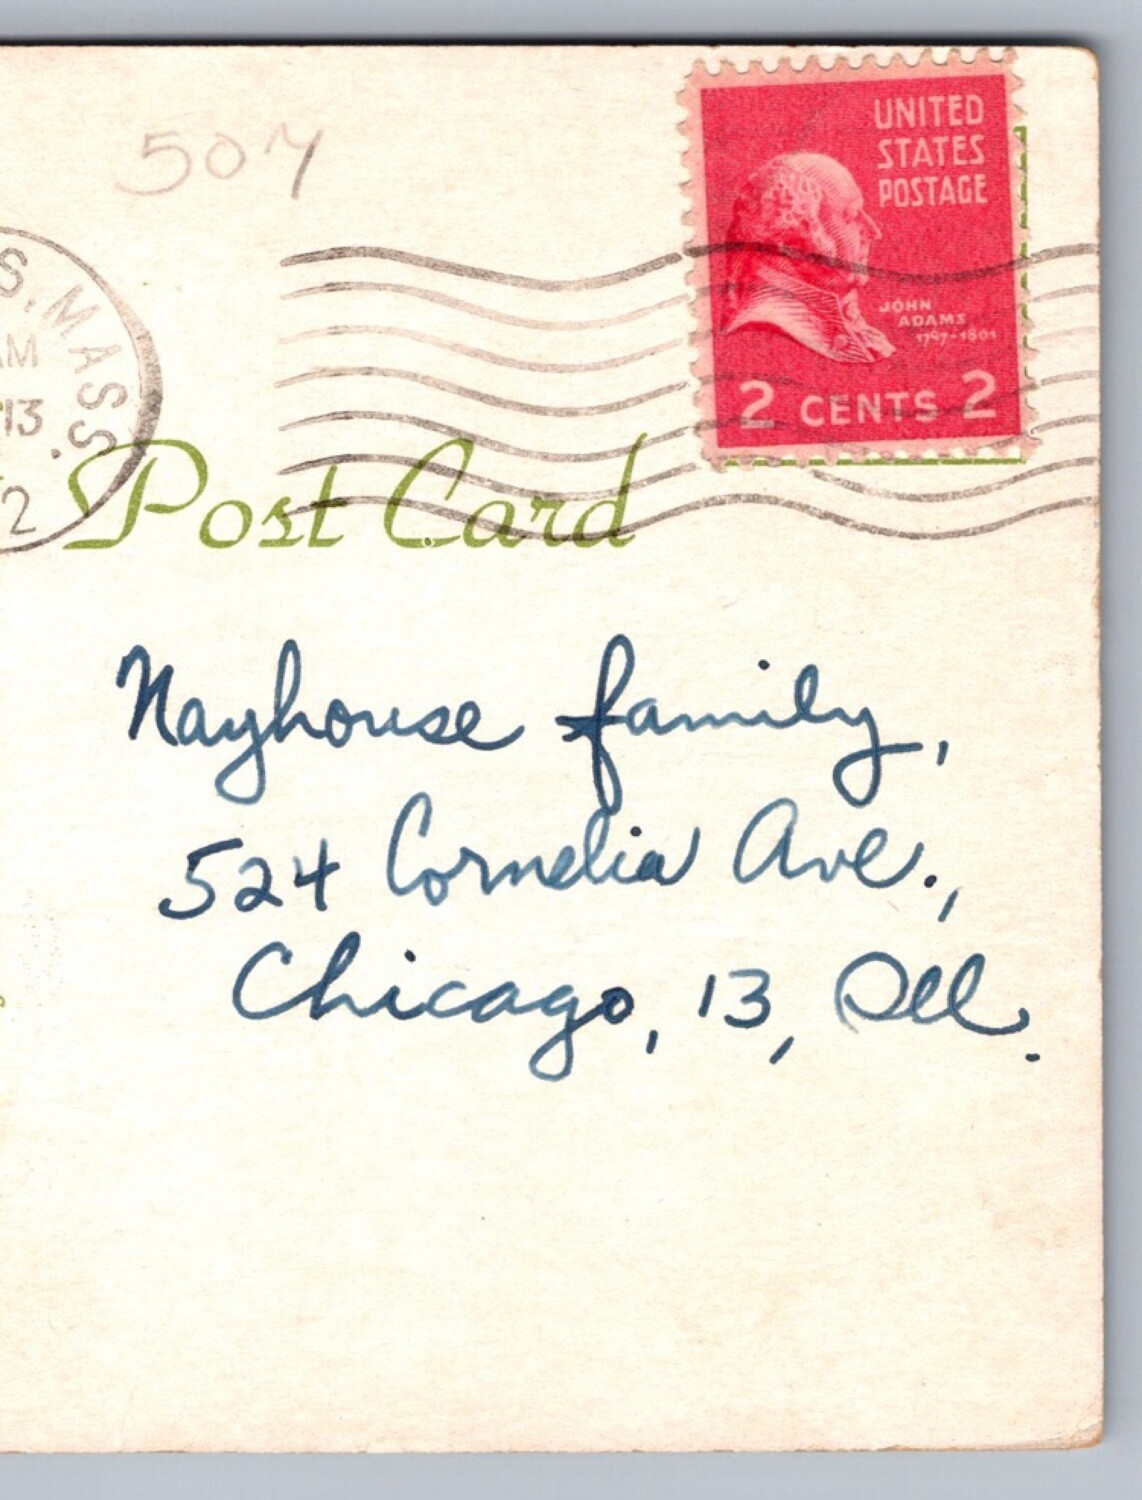 507
UNITED
STATES
POSTAGE
JOHN
ADAMS
1797-1801
2 CENTS 2
S, MASS.
AM
13
2
Post Card
Nayhouse family,
524 Cornelia Ave.,
Chicago, 13, Ill.